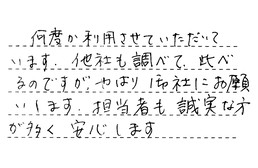 何度か利用させていただいて
います。他社も調べて、比べ
るのですが、やはり御社にお願
いします。担当者も誠実な方
が多く安心します